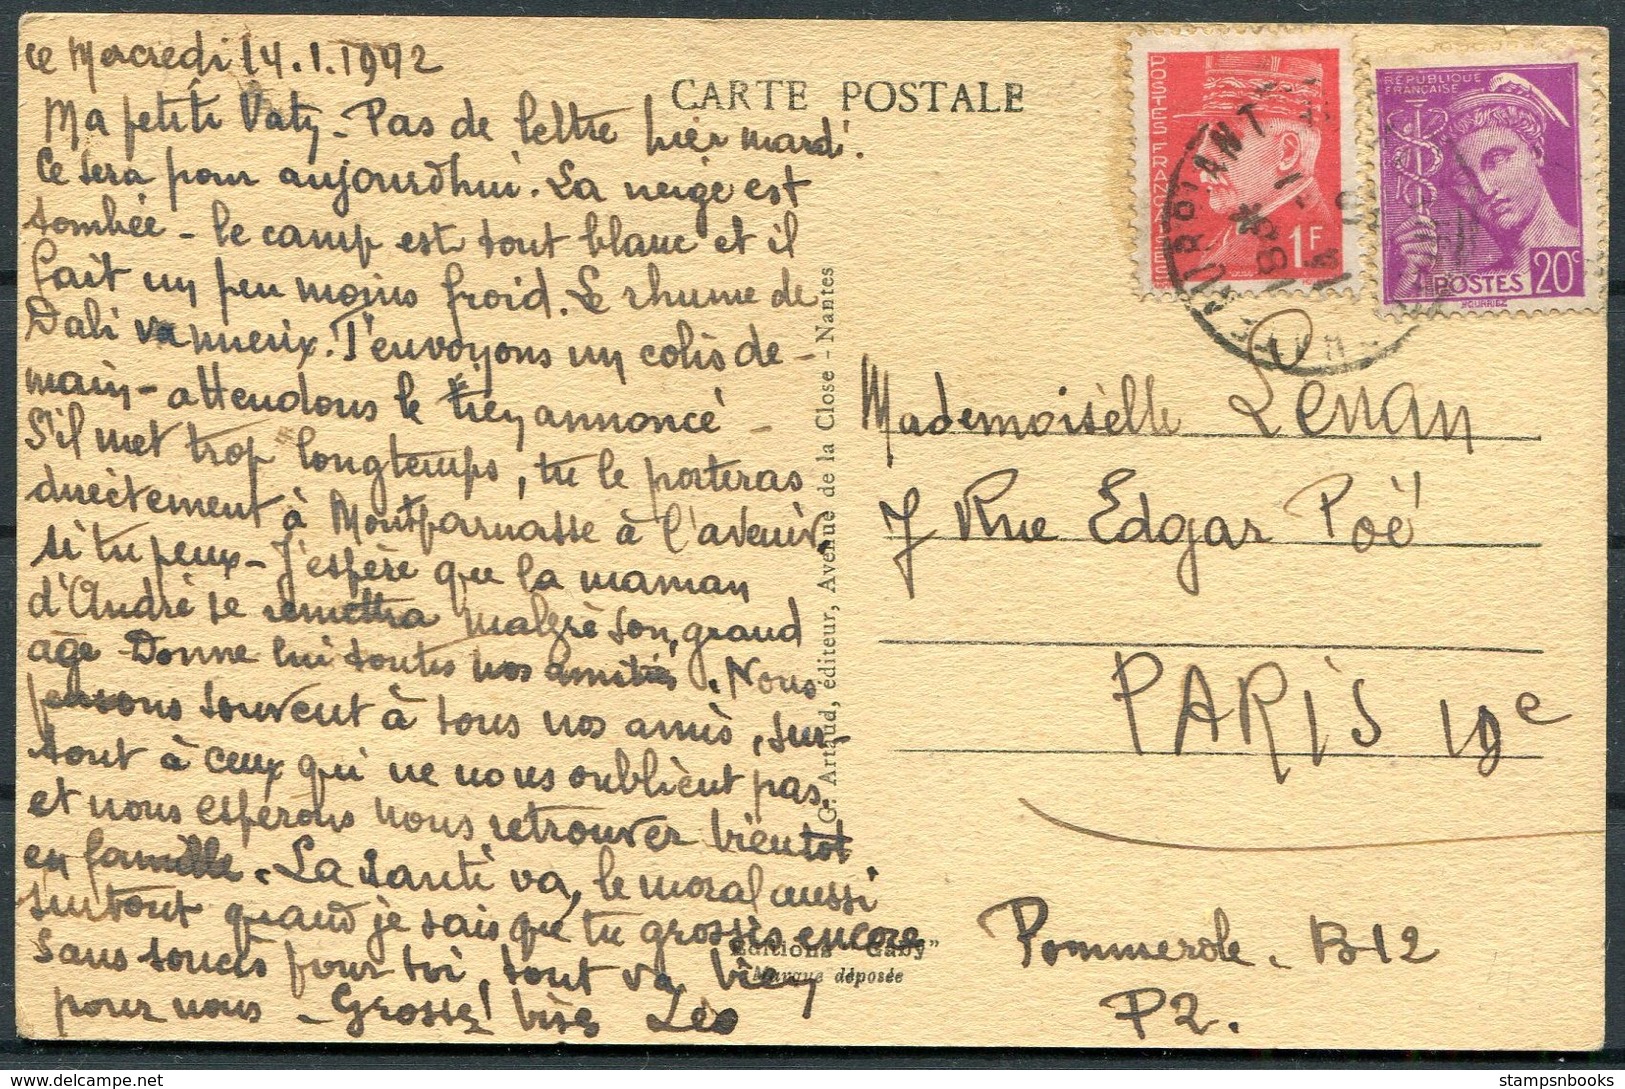 ce Mercredi 14.1.1942
Ma petite Vaty - Pas de lettre hier mardi.
Ce sera pour aujourdhui. La neige est
tombée - le camp est tout blanc et il
fait un peu moins froid. Le rhume de
Dali va mieux. T'envoyons un colis de-
main - attendons le tien annoncé -
S'il met trop longtemps, tu le porteras
directement à Montparnasse à l'avenir,
si tu peux - J'espère que la maman
d'André se remettra malgré son grand
age - Donne lui toutes nos amitiés. Nous
pensons souvent à tous nos amis, sur-
tout à ceux qui ne nous oublient pas.
et nous espérons nous retrouver bientot
en famille. La santé va, le moral aussi
surtout quand je sais que tu grossis encore
sans soucis pour toi, tout va bien
pour nous - Grosses bises Léo
CARTE POSTALE
G. Artaud, éditeur, Avenue de la Close - Nantes
Editions "Gaby"
Marque déposée
POSTES FRANÇAISES
1F
RÉPUBLIQUE
FRANÇAISE
POSTES 20c
Mademoiselle Lenan
7 Rue Edgar Poë
PARIS 19e
Pommerole - B12
P2.